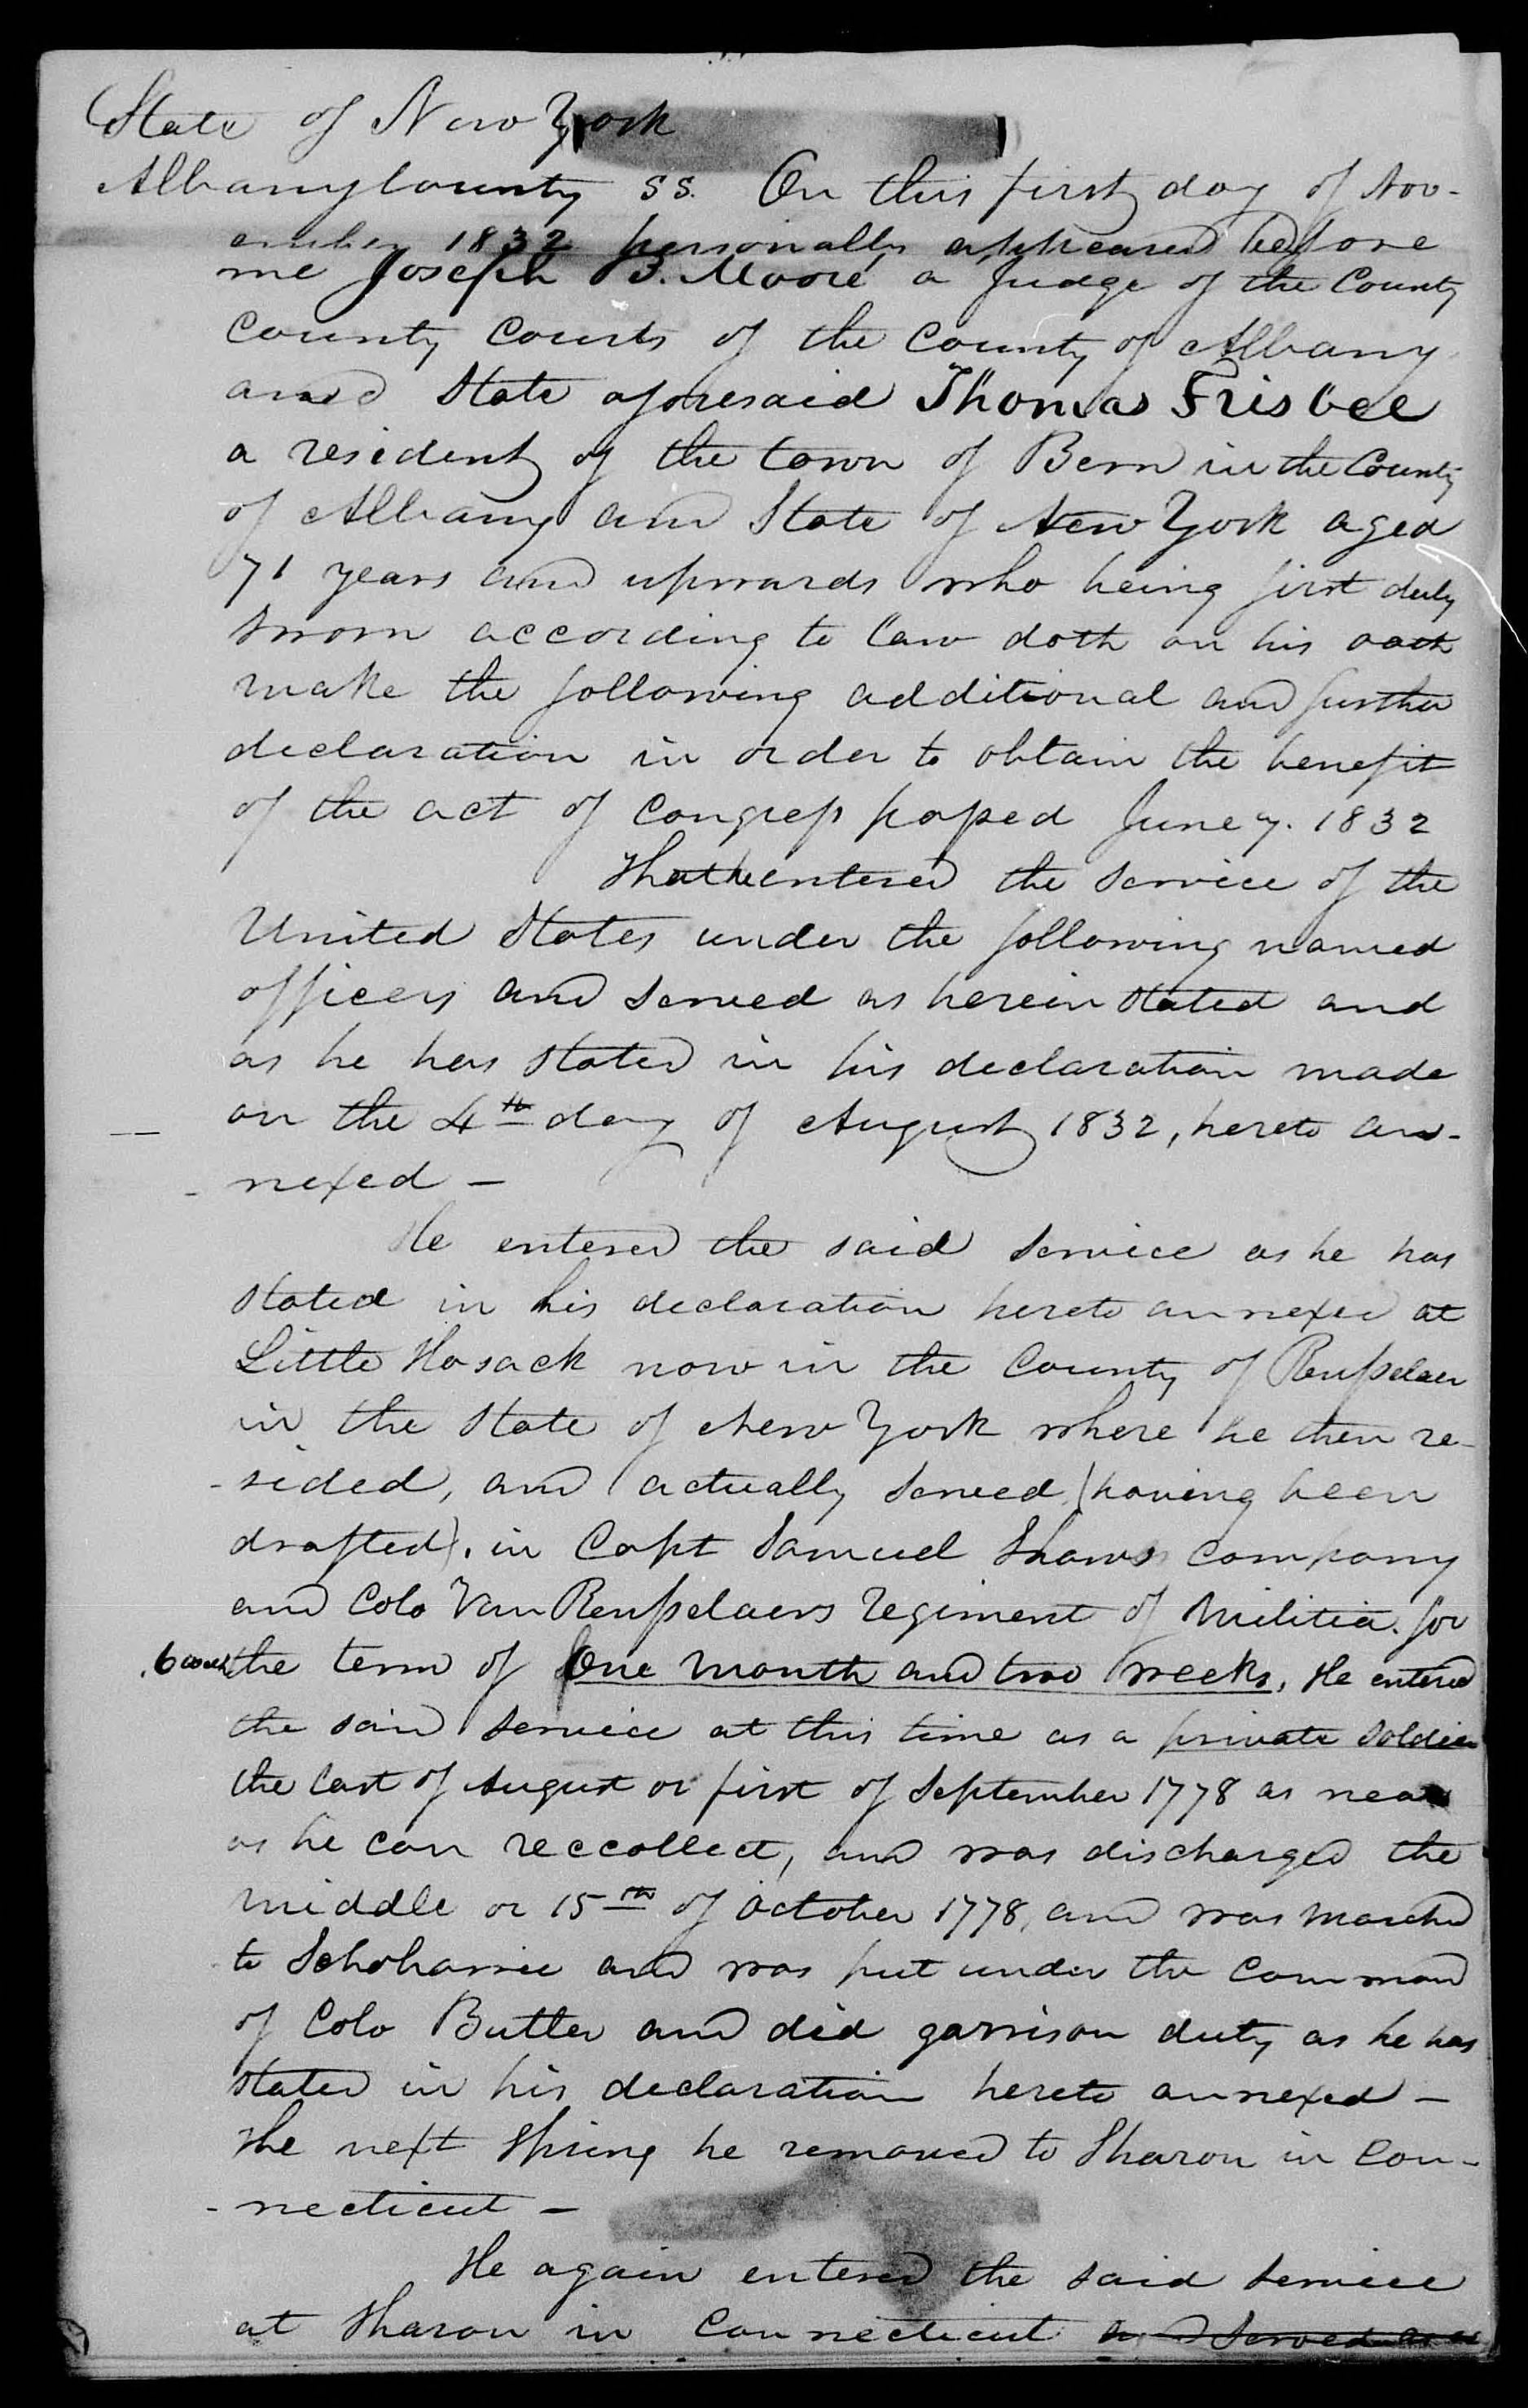 State of New York
Albany County SS. On this first day of Nov-
ember 1832 personally appeared before
me Joseph B. Moore a Judge of the County
County Courts of the County of Albany
and State aforesaid Thomas Frisbee
a resident of the town of Bern in the County
of Albany and State of New York aged
71 years and upwards who being first duly
sworn according to law doth on his oath
make the following additional and further
declaration in order to obtain the benefit
of the act of Congress passed June 7. 1832
That he entered the service of the
United States under the following named
officers and served as herein stated and
as he has stated in his declaration made
on the 4th day of August 1832, hereto an-
- nexed -
He entered the said service as he has
stated in his declaration hereto annexed at
Little Hosack now in the County of Rensselaer
in the State of New York where he then re-
- sided, and actually served (having been
drafted), in Capt Samuel Shaws company
and Colo Van Rensselaers regiment of Militia for
6 weeks the term of One month and two weeks, He entered
the said service at this time as a private soldier
the last of August or first of September 1778 as near
as he can reccollect, and was discharged the
middle or 15th of October 1778, and was marched
to Schoharrie and was put under the command
of Colo Butler and did garrison duty as he has
stated in his declaration hereto annexed -
The next Spring he removed to Sharon in Con-
- necticut -
He again entered the said service
at Sharon in Connecticut and served as a